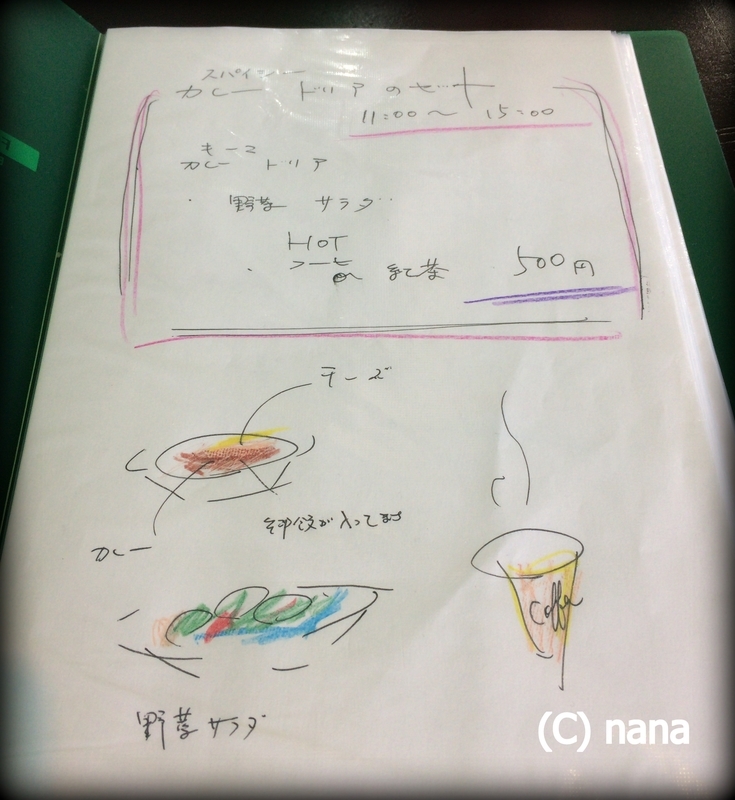 スパイシー
カレー ドリアのセット
11:00〜 15:00
キーマ
カレー ドリア
・ 野菜 サラダ
HOT
・ コーヒー or 紅茶
500円
チーズ
が入ってます
カレー
coffee
野菜サラダ
(C) nana